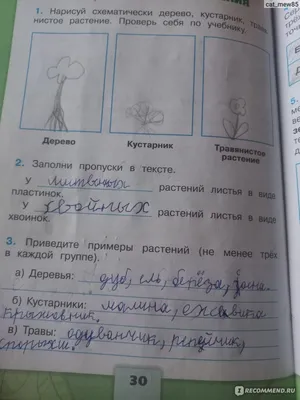 cat_mew85
1. Нарисуй схематически дерево, кустарник, травя
нистое растение. Проверь себя по учебнику.
Дерево
Кустарник
Травянистое
растение
2. Заполни пропуски в тексте.
У лиственых растений листья в виде
пластинок.
У хвойных растений листья в виде
хвоинок.
3. Приведите примеры растений (не менее трёх
в каждой группе).
а) Деревья: дуб, ель, берёза,
б) Кустарники: малина, ежевика
крыжовник.
в) Травы: одуванчик, репейник,
30
RECOMMEND.RU